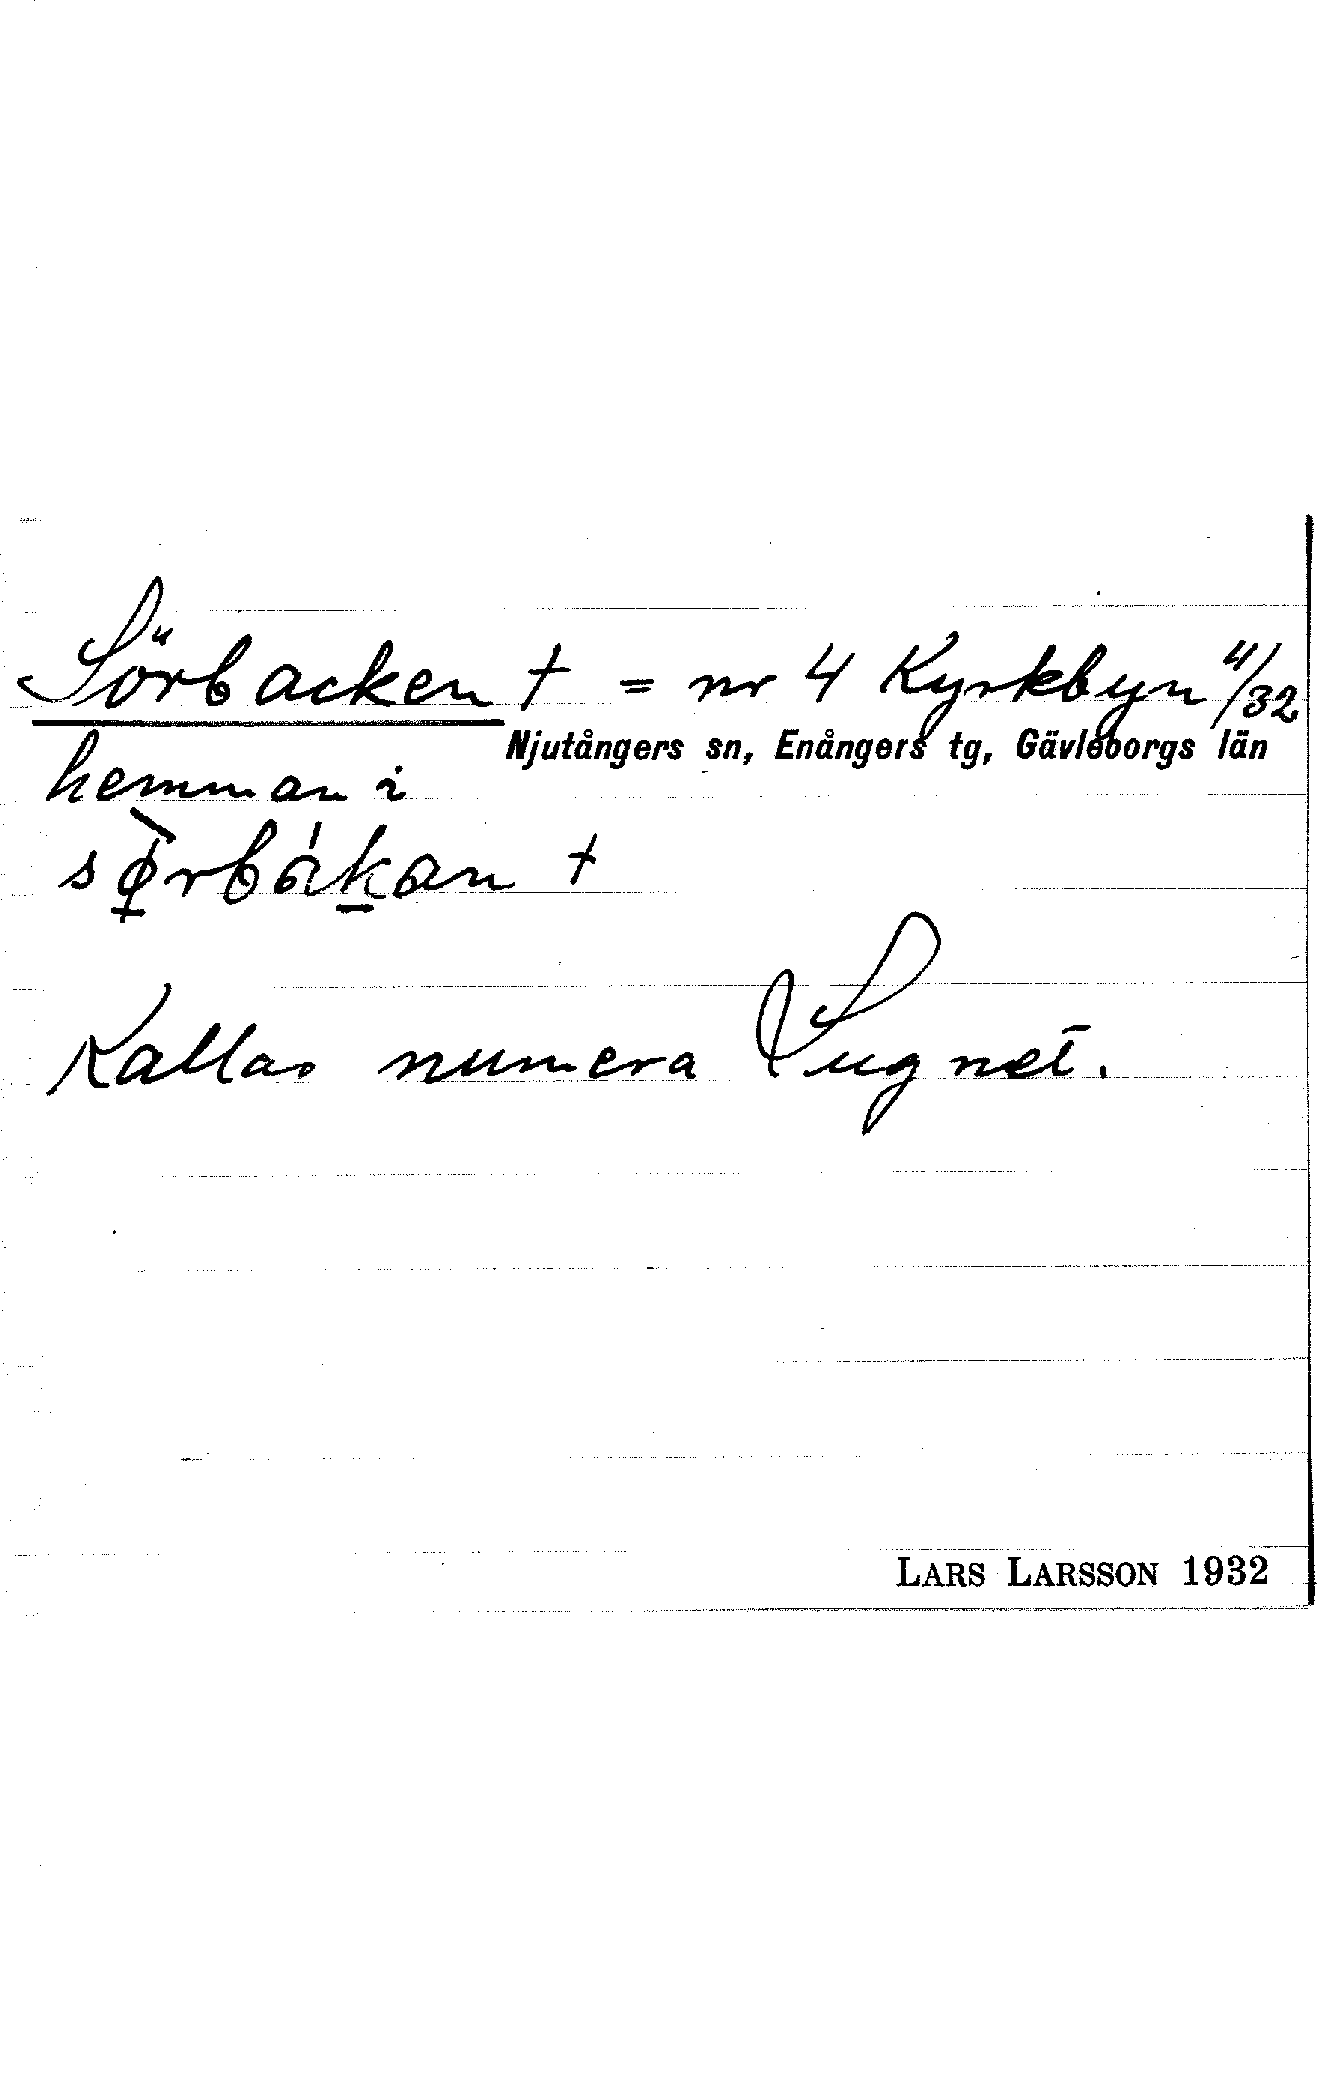 Sörbacken † = nr 4 Kyrkbyn 4/32
Njutångers sn, Enångers tg, Gävleborgs län
hemman i
sø̀rbákan †
Kallas numera Lugnet.
LARS LARSSON 1932